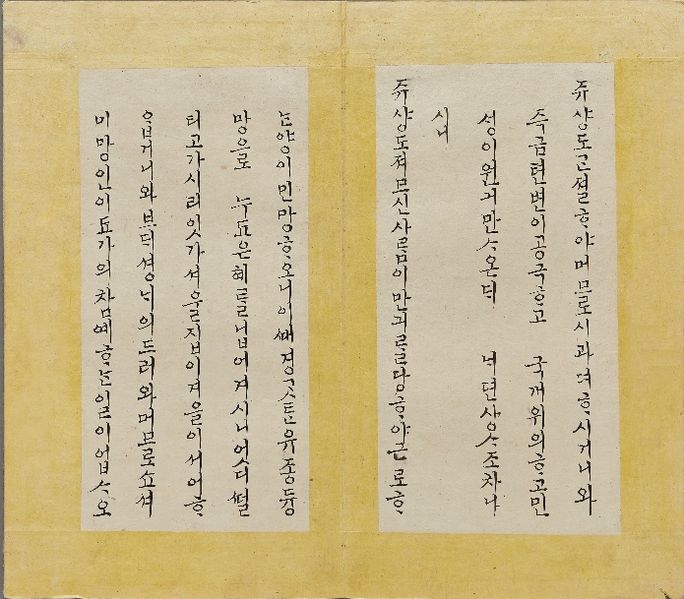 쥬샹도고졀ᄒᆞ야머므로시과뎌ᄒᆞ시거니와
즉금텬변이공극ᄒᆞ고 국개위의ᄒᆞ고민
셩이원긔만ᄉᆞ온ᄃᆡ 상ᄉᆞ조차나
시니
쥬샹도져므신사ᄅᆞᆷ이만긔ᄅᆞᆯ당ᄒᆞ야근로ᄒᆞ
ᄂᆞᆫ양이민망ᄒᆞ오니이ᄣᅢ경ᄀᆞᆺᄐᆞᆫ유종듕
망으로 누됴은혜ᄅᆞᆯ닙어겨시니어ᄉᆞ디ᄯᅥᆯ
티고가시리잇가셔울집이겨을이서어ᄒᆞ
ᄋᆞᆸ거니와브ᄃᆡ셩ᄂᆡ의드러와머므로쇼셔
미망인이됴가의참예ᄒᆞᄂᆞᆫ일이업ᄉᆞ오